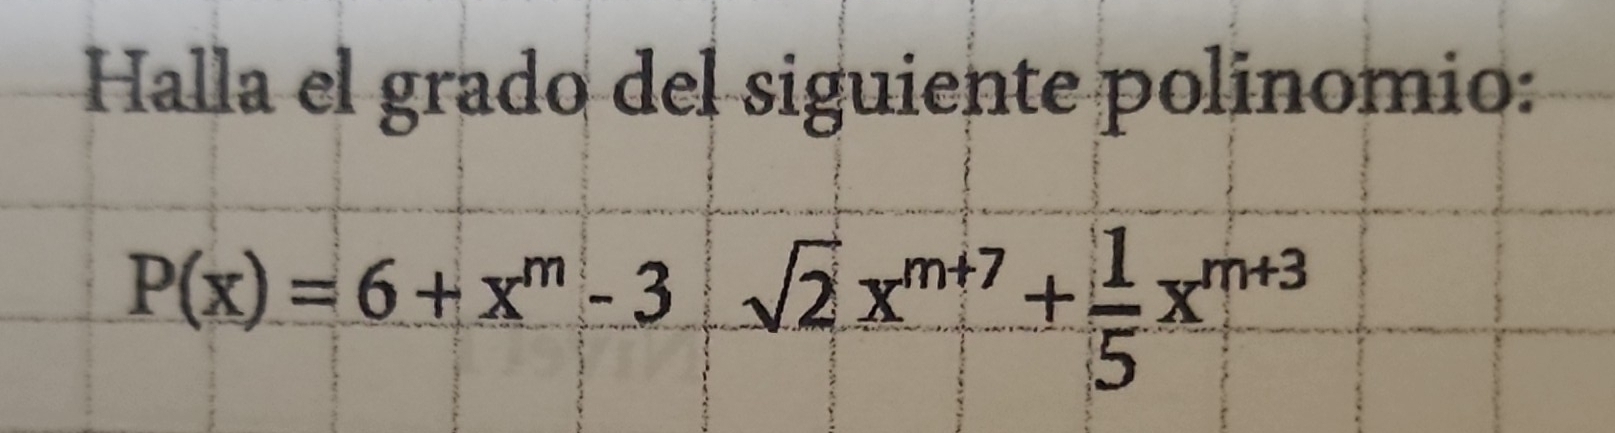 Halla el grado del siguiente polinomio:
P(x) = 6 + x^m - 3 √2 x^(m+7) + 1/5 x^(m+3)